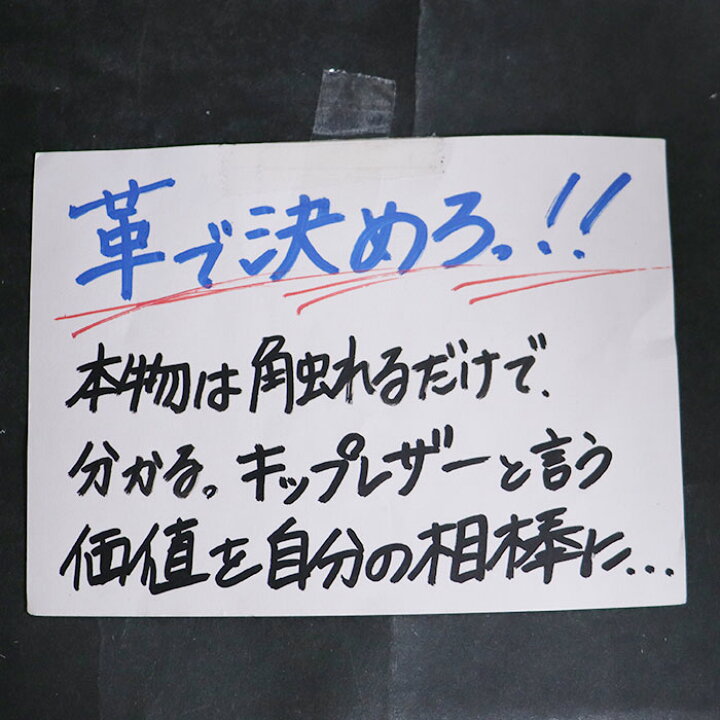 革で決めろっ!!
本物は触れるだけで、
分かる。キップレザーと言う
価値を自分の相棒に...